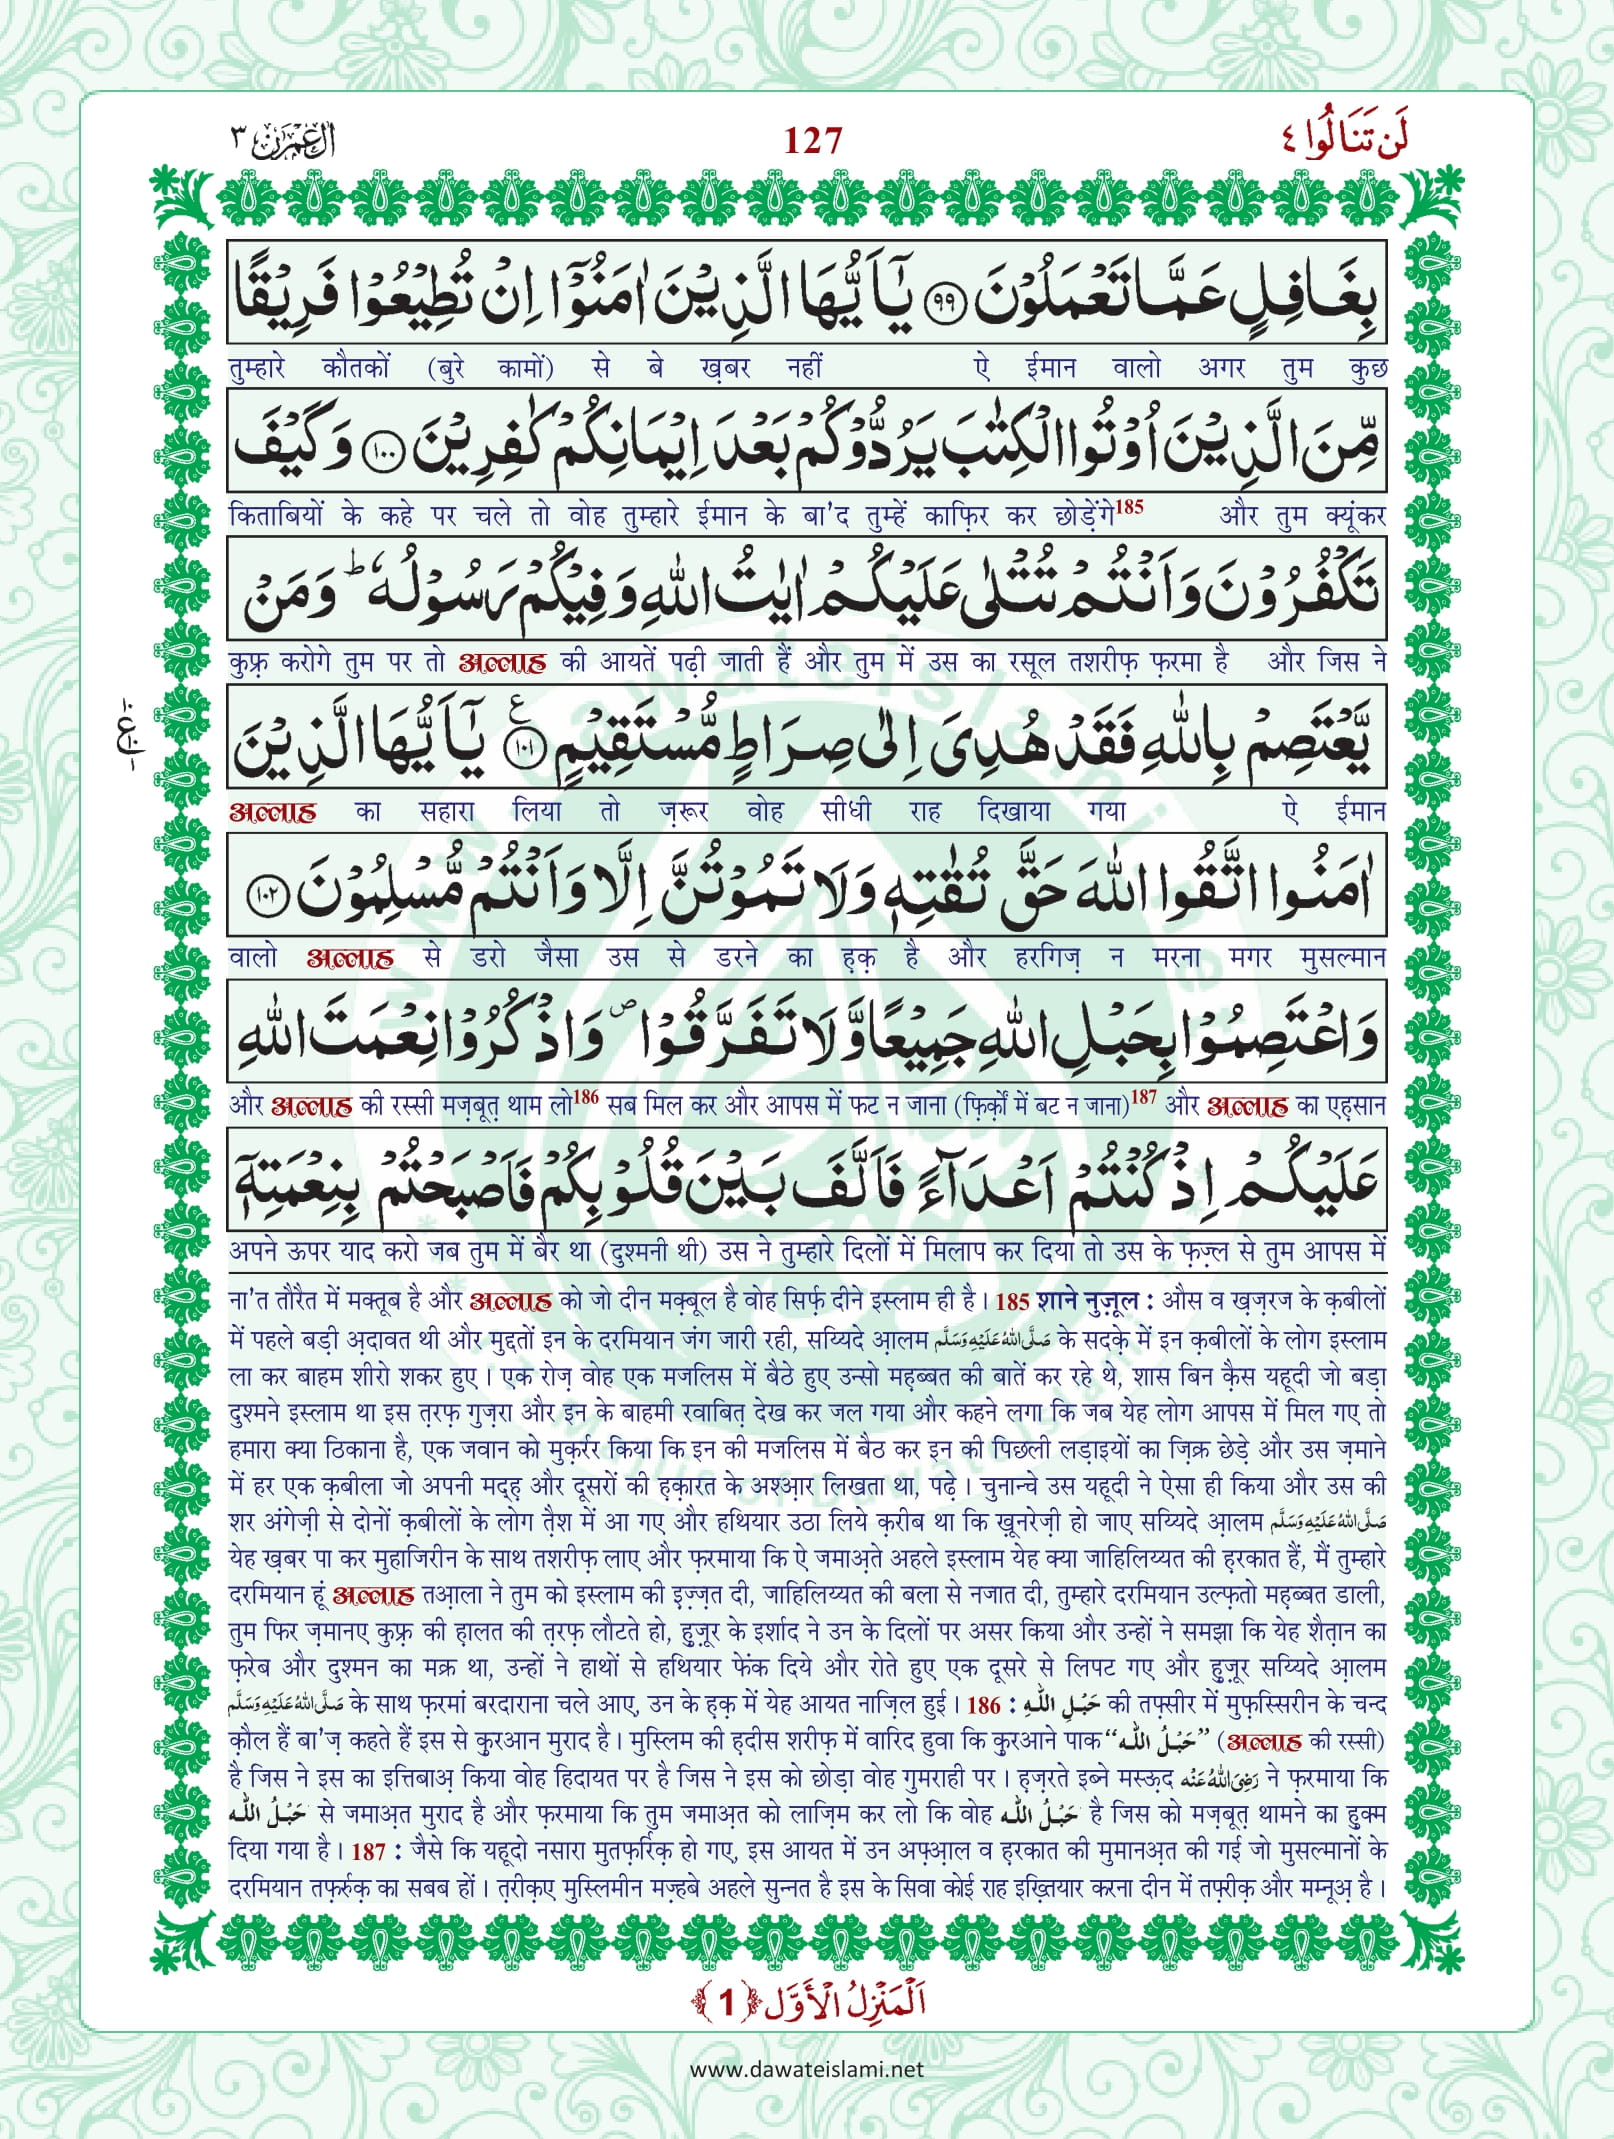 اٰل عمرٰن ٣
127
لَنْ تَنَالُوا ٤
بِغَافِلٍ عَمَّا تَعْمَلُوْنَ ﴿۹۹﴾ یٰۤاَیُّهَا الَّذِیْنَ اٰمَنُوْۤا اِنْ تُطِیْعُوْا فَرِیْقًا
तुम्हारे कौतकों (बुरे कामों) से बे ख़बर नहीं ऐ ईमान वालो अगर तुम कुछ
مِّنَ الَّذِیْنَ اُوْتُوا الْكِتٰبَ یَرُدُّوْكُمْ بَعْدَ اِیْمَانِكُمْ كٰفِرِیْنَ ﴿۱۰۰﴾ وَ كَیْفَ
किताबियों के कहे पर चले तो वोह तुम्हारे ईमान के बा'द तुम्हें काफ़िर कर छोड़ेंगे185 और तुम क्यूंकर
تَكْفُرُوْنَ وَ اَنْتُمْ تُتْلٰى عَلَیْكُمْ اٰیٰتُ اللّٰهِ وَ فِیْكُمْ رَسُوْلُهٗ ؕ وَ مَنْ
कुफ़्र करोगे तुम पर तो अल्लाह की आयतें पढ़ी जाती हैं और तुम में उस का रसूल तशरीफ़ फ़रमा है और जिस ने
یَّعْتَصِمْ بِاللّٰهِ فَقَدْ هُدِیَ اِلٰى صِرَاطٍ مُّسْتَقِیْمٍ ﴿۱۰۱﴾ ع یٰۤاَیُّهَا الَّذِیْنَ
अल्लाह का सहारा लिया तो ज़रूर वोह सीधी राह दिखाया गया ऐ ईमान
اٰمَنُوا اتَّقُوا اللّٰهَ حَقَّ تُقٰتِهٖ وَ لَا تَمُوْتُنَّ اِلَّا وَ اَنْتُمْ مُّسْلِمُوْنَ ﴿۱۰۲﴾
वालो अल्लाह से डरो जैसा उस से डरने का ह़क़ है और हरगिज़ न मरना मगर मुसल्मान
وَ اعْتَصِمُوْا بِحَبْلِ اللّٰهِ جَمِیْعًا وَّ لَا تَفَرَّقُوْا ۪ وَ اذْكُرُوْا نِعْمَتَ اللّٰهِ
और अल्लाह की रस्सी मज़बूत़ थाम लो186 सब मिल कर और आपस में फट न जाना (फ़िर्क़ों में बट न जाना)187 और अल्लाह का एह़सान
عَلَیْكُمْ اِذْ كُنْتُمْ اَعْدَآءً فَاَلَّفَ بَیْنَ قُلُوْبِكُمْ فَاَصْبَحْتُمْ بِنِعْمَتِهٖۤ
अपने ऊपर याद करो जब तुम में बैर था (दुश्मनी थी) उस ने तुम्हारे दिलों में मिलाप कर दिया तो उस के फ़ज़्ल से तुम आपस में
ना'त तौरैत में मक्तूब है और अल्लाह को जो दीन मक़्बूल है वोह सिर्फ़ दीने इस्लाम ही है। 185 शाने नुज़ूल : औस व ख़ज़रज के क़बीलों
में पहले बड़ी अ़दावत थी और मुद्दतों इन के दरमियान जंग जारी रही, सय्यिदे आ़लम صَلَّى اللهُ عَلَيْهِ وَسَلَّم के सदक़े में इन क़बीलों के लोग इस्लाम
ला कर बाहम शीरो शकर हुए। एक रोज़ वोह एक मजलिस में बैठे हुए उन्सो मह़ब्बत की बातें कर रहे थे, शास बिन क़ैस यहूदी जो बड़ा
दुश्मने इस्लाम था इस त़रफ़ गुज़रा और इन के बाहमी रवाबित़ देख कर जल गया और कहने लगा कि जब येह लोग आपस में मिल गए तो
हमारा क्या ठिकाना है, एक जवान को मुक़र्रर किया कि इन की मजलिस में बैठ कर इन की पिछली लड़ाइयों का ज़िक्र छेड़े और उस ज़माने
में हर एक क़बीला जो अपनी मद्ह़ और दूसरों की ह़क़ारत के अश्आ़र लिखता था, पढ़े। चुनान्चे उस यहूदी ने ऐसा ही किया और उस की
शर अंगेज़ी से दोनों क़बीलों के लोग त़ैश में आ गए और हथियार उठा लिये क़रीब था कि ख़ूनरेज़ी हो जाए सय्यिदे आ़लम صَلَّى اللهُ عَلَيْهِ وَسَلَّم
येह ख़बर पा कर मुहाजिरीन के साथ तशरीफ़ लाए और फ़रमाया कि ऐ जमाअ़ते अहले इस्लाम येह क्या जाहिलिय्यत की ह़रकात हैं, मैं तुम्हारे
दरमियान हूं अल्लाह तआ़ला ने तुम को इस्लाम की इ़ज़्ज़त दी, जाहिलिय्यत की बला से नजात दी, तुम्हारे दरमियान उल्फ़तो मह़ब्बत डाली,
तुम फिर ज़मानए कुफ़्र की ह़ालत की त़रफ़ लौटते हो, हु़ज़ूर के इर्शाद ने उन के दिलों पर असर किया और उन्हों ने समझा कि येह शैत़ान का
फ़रेब और दुश्मन का मक्र था, उन्हों ने हाथों से हथियार फेंक दिये और रोते हुए एक दूसरे से लिपट गए और हु़ज़ूर सय्यिदे आ़लम
صَلَّى اللهُ عَلَيْهِ وَسَلَّم के साथ फ़रमां बरदाराना चले आए, उन के ह़क़ में येह आयत नाज़िल हुई। 186 : حَبْلِ اللّٰه की तफ़्सीर में मुफ़स्सिरीन के चन्द
क़ौल हैं बा'ज़ कहते हैं इस से क़ुरआन मुराद है। मुस्लिम की ह़दीस शरीफ़ में वारिद हुवा कि क़ुरआने पाक “حَبْلُ اللّٰه” (अल्लाह की रस्सी)
है जिस ने इस का इत्तिबाअ़ किया वोह हिदायत पर है जिस ने इस को छोड़ा वोह गुमराही पर। ह़ज़रते इब्ने मस्ऊ़द رَضِيَ اللهُ عَنْه ने फ़रमाया कि
حَبْلُ اللّٰه से जमाअ़त मुराद है और फ़रमाया कि तुम जमाअ़त को लाज़िम कर लो कि वोह حَبْلُ اللّٰه है जिस को मज़बूत़ थामने का हु़क्म
दिया गया है। 187 : जैसे कि यहूदो नसारा मुतफ़र्रिक़ हो गए, इस आयत में उन अफ़्आ़ल व ह़रकात की मुमानअ़त की गई जो मुसल्मानों के
दरमियान तफ़र्रुक़ का सबब हों। त़रीक़ए मुस्लिमीन मज़्हबे अहले सुन्नत है इस के सिवा कोई राह इख़्तियार करना दीन में तफ़्रीक़ और मम्नूअ़ है।
اَلْمَنْزِلُ الْاَوَّل ﴿1﴾
www.dawateislami.net